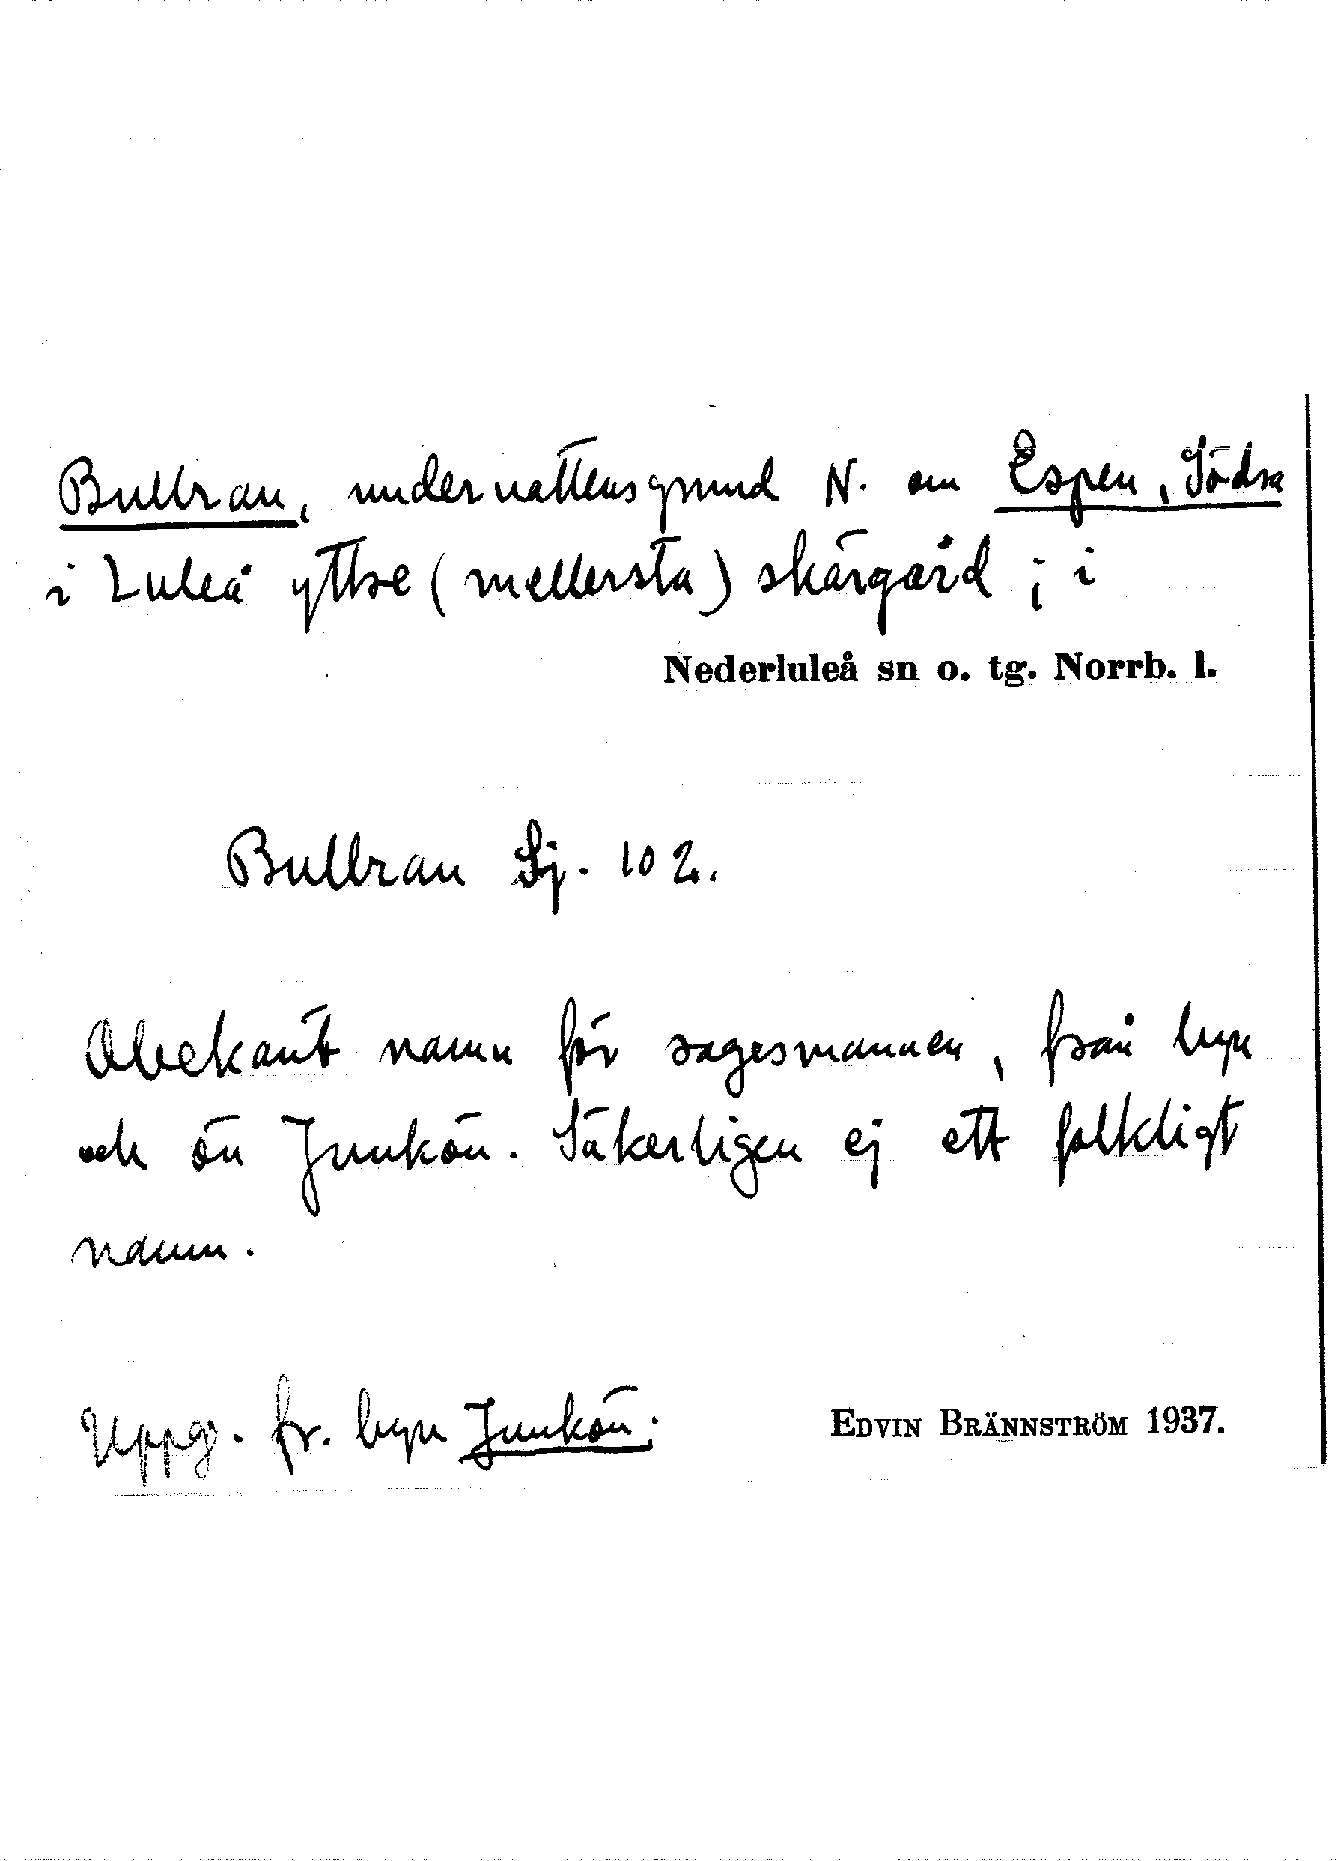 Bullran, undervattensgrund N. om Espen, Södra
i Luleå yttre (mellersta) skärgård ; i
Nederluleå sn o. tg. Norrb. l.
Bullran Sj. 102.
Obekant namn för sagesmannen, från byn
och ön Junkön. Säkerligen ej ett folkligt
namn.
Uppg. fr. byn Junkön.
EDVIN BRÄNNSTRÖM 1937.